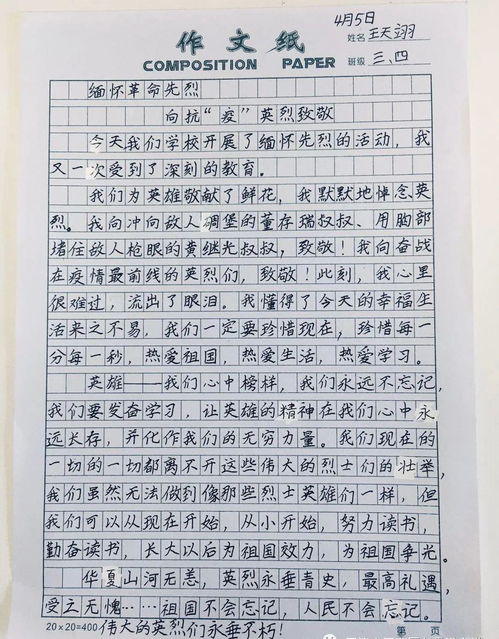 4月5日
作文纸 姓名 王天翊
COMPOSITION PAPER 班级 三、四
缅怀革命先烈
向抗“疫”英烈致敬
今天我们学校开展了缅怀先烈的活动，我
又一次受到了深刻的教育。
我们为英雄敬献了鲜花，我默默地悼念英
烈。我向冲向敌人碉堡的董存瑞叔叔、用胸部
堵住敌人枪眼的黄继光叔叔，致敬！我向奋战
在疫情最前线的英烈们，致敬！此刻，我心里
很难过，流出了眼泪。我懂得了今天的幸福生
活来之不易，我们一定要珍惜现在，珍惜每一
分每一秒，热爱祖国，热爱生活，热爱学习。
英雄——我们心中榜样，我们永远不忘记，
我们要发奋学习，让英雄的精神在我们心中永
远长存，并化作我们的无穷力量。我们现在的
一切的一切都离不开这些伟大的烈士们的壮举，
我们虽然无法做到像那些烈士英雄们一样，但
我们可以从现在开始，从小开始，努力读书，
勤奋读书，长大以后为祖国效力，为祖国争光。
华夏山河无恙，英烈永垂青史，最高礼遇，
受之无愧……祖国不会忘记，人民不会忘记。
20×20=400 伟大的英烈们永垂不朽！ 第 页